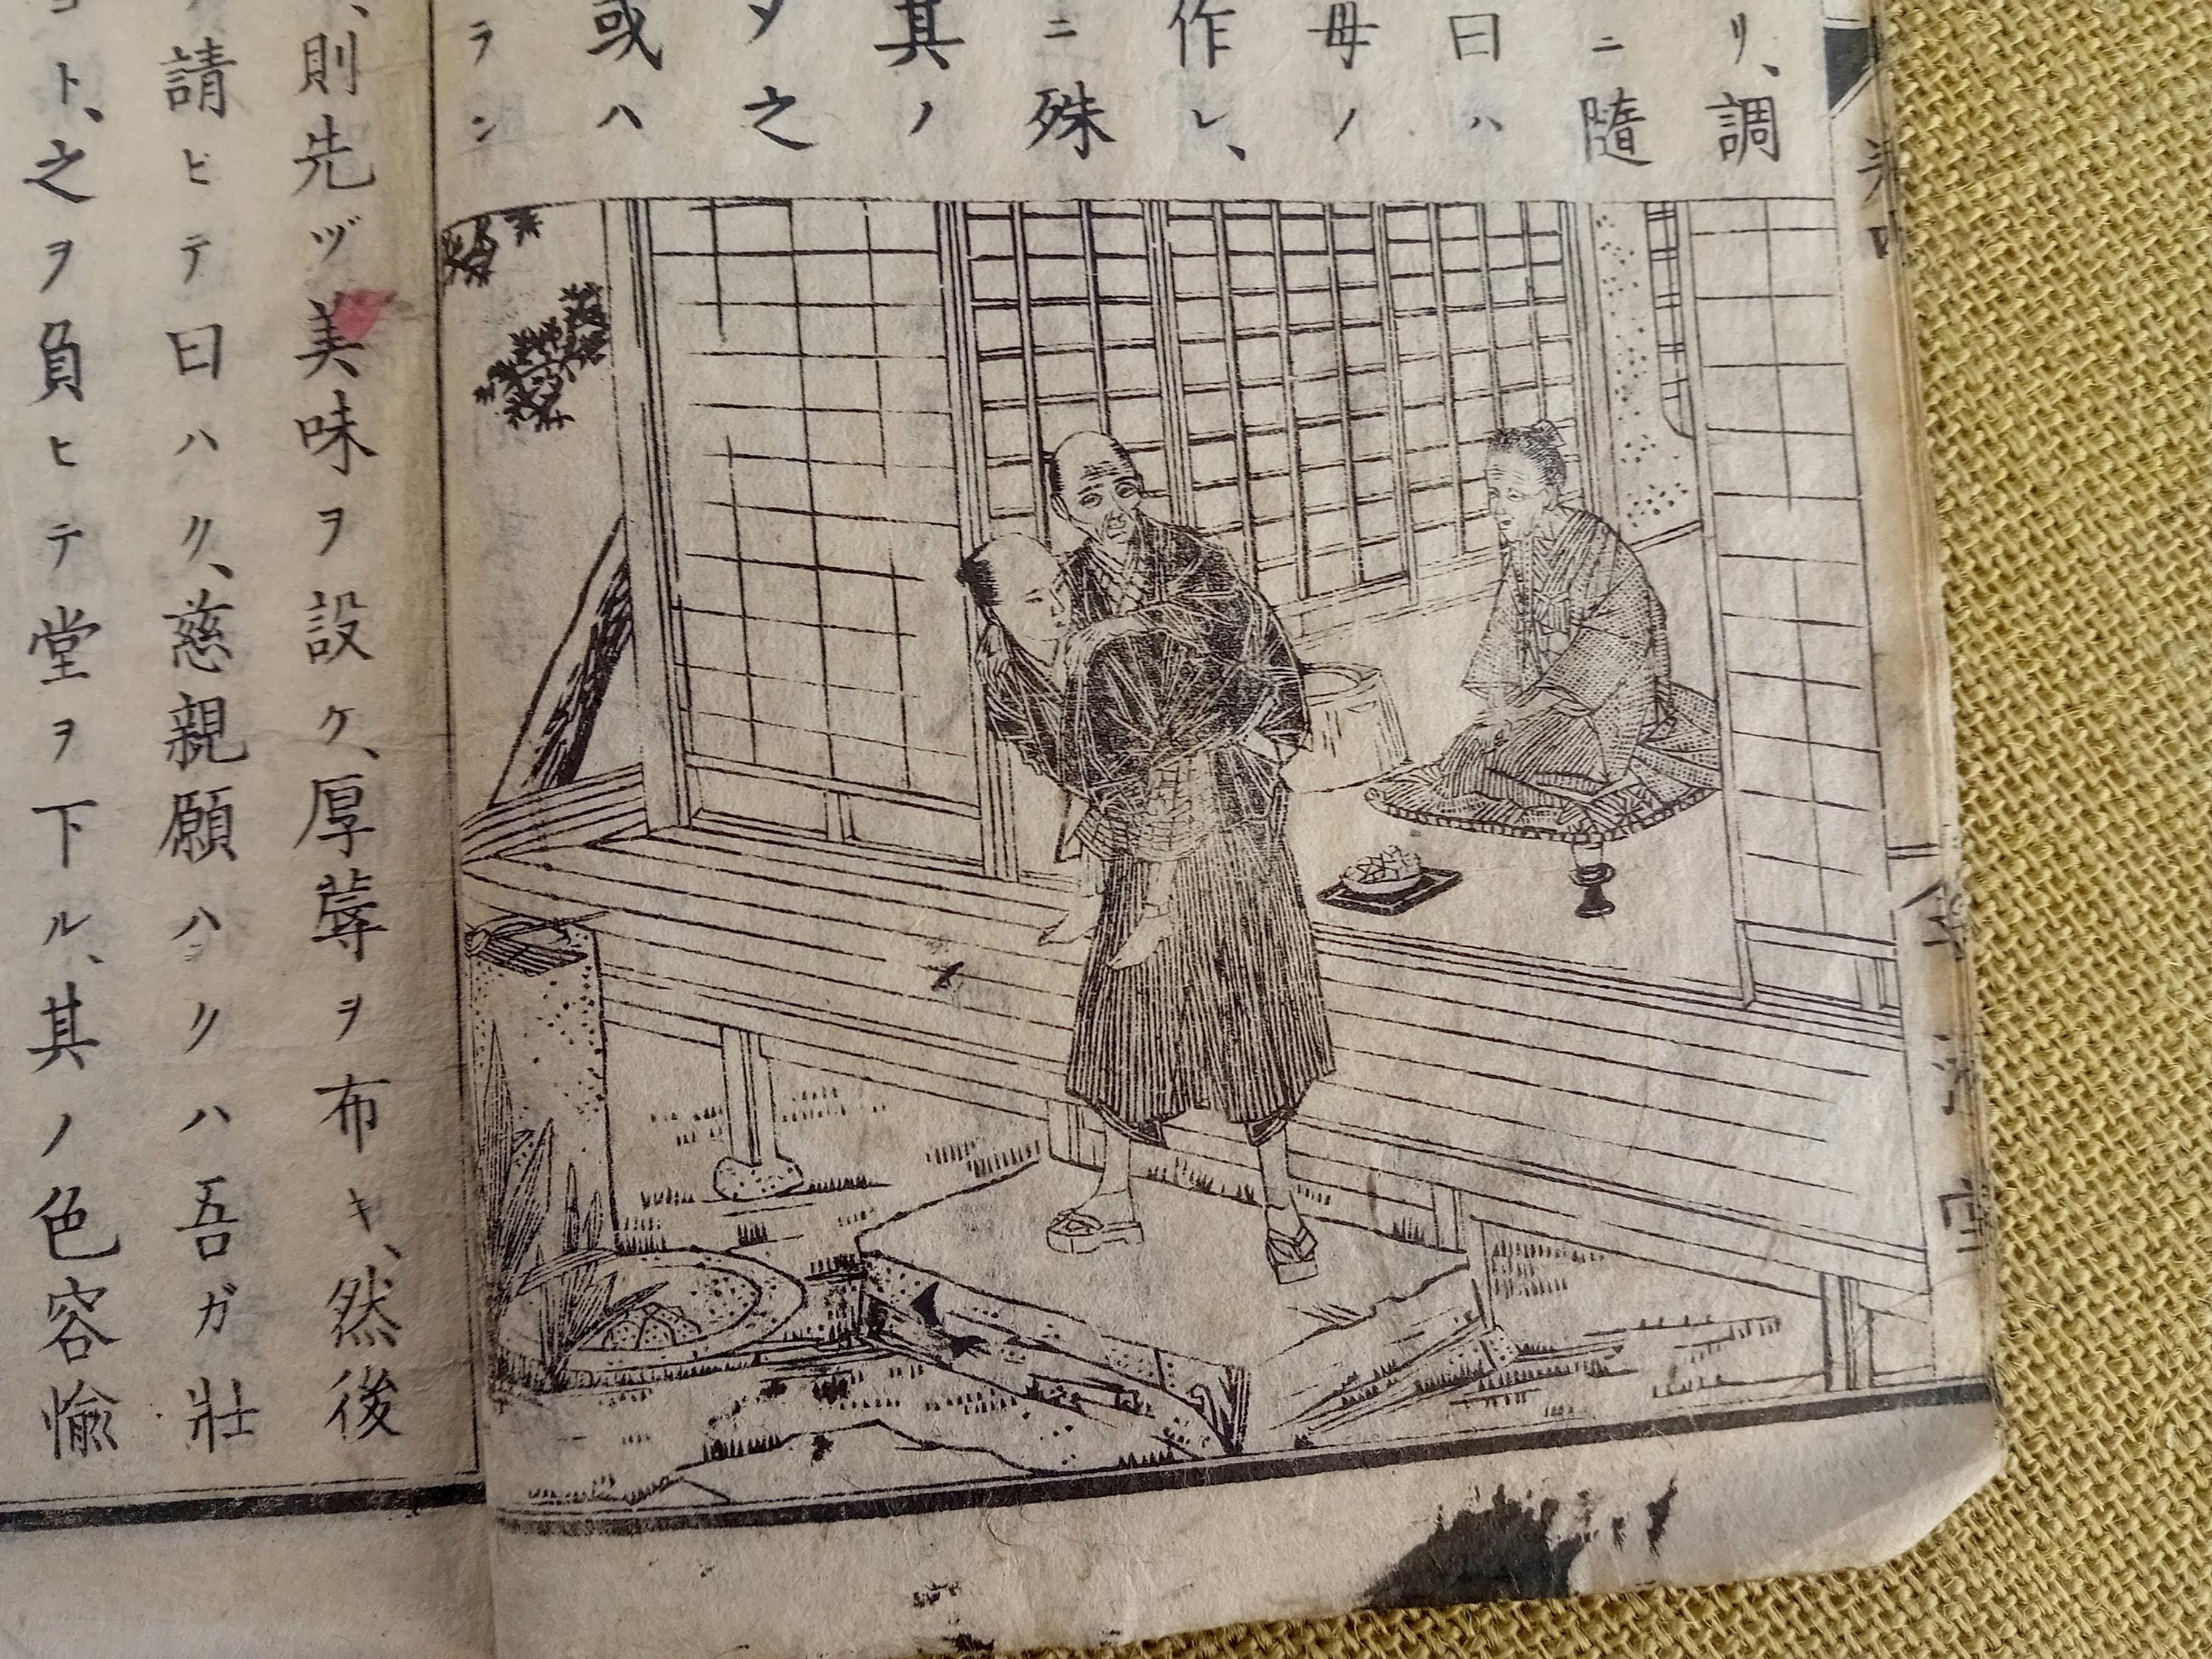 リ、調
ニ隨
曰ハ
母ノ
作レ、
ニ殊
其ノ
之
或ハ
ラン
則先ヅ美味ヲ設ケ、厚蓐ヲ布キ、然後
請ヒテ曰ハク、慈親願ハクハ吾ガ壯
ト、之ヲ負ヒテ堂ヲ下ル、其ノ色容愉